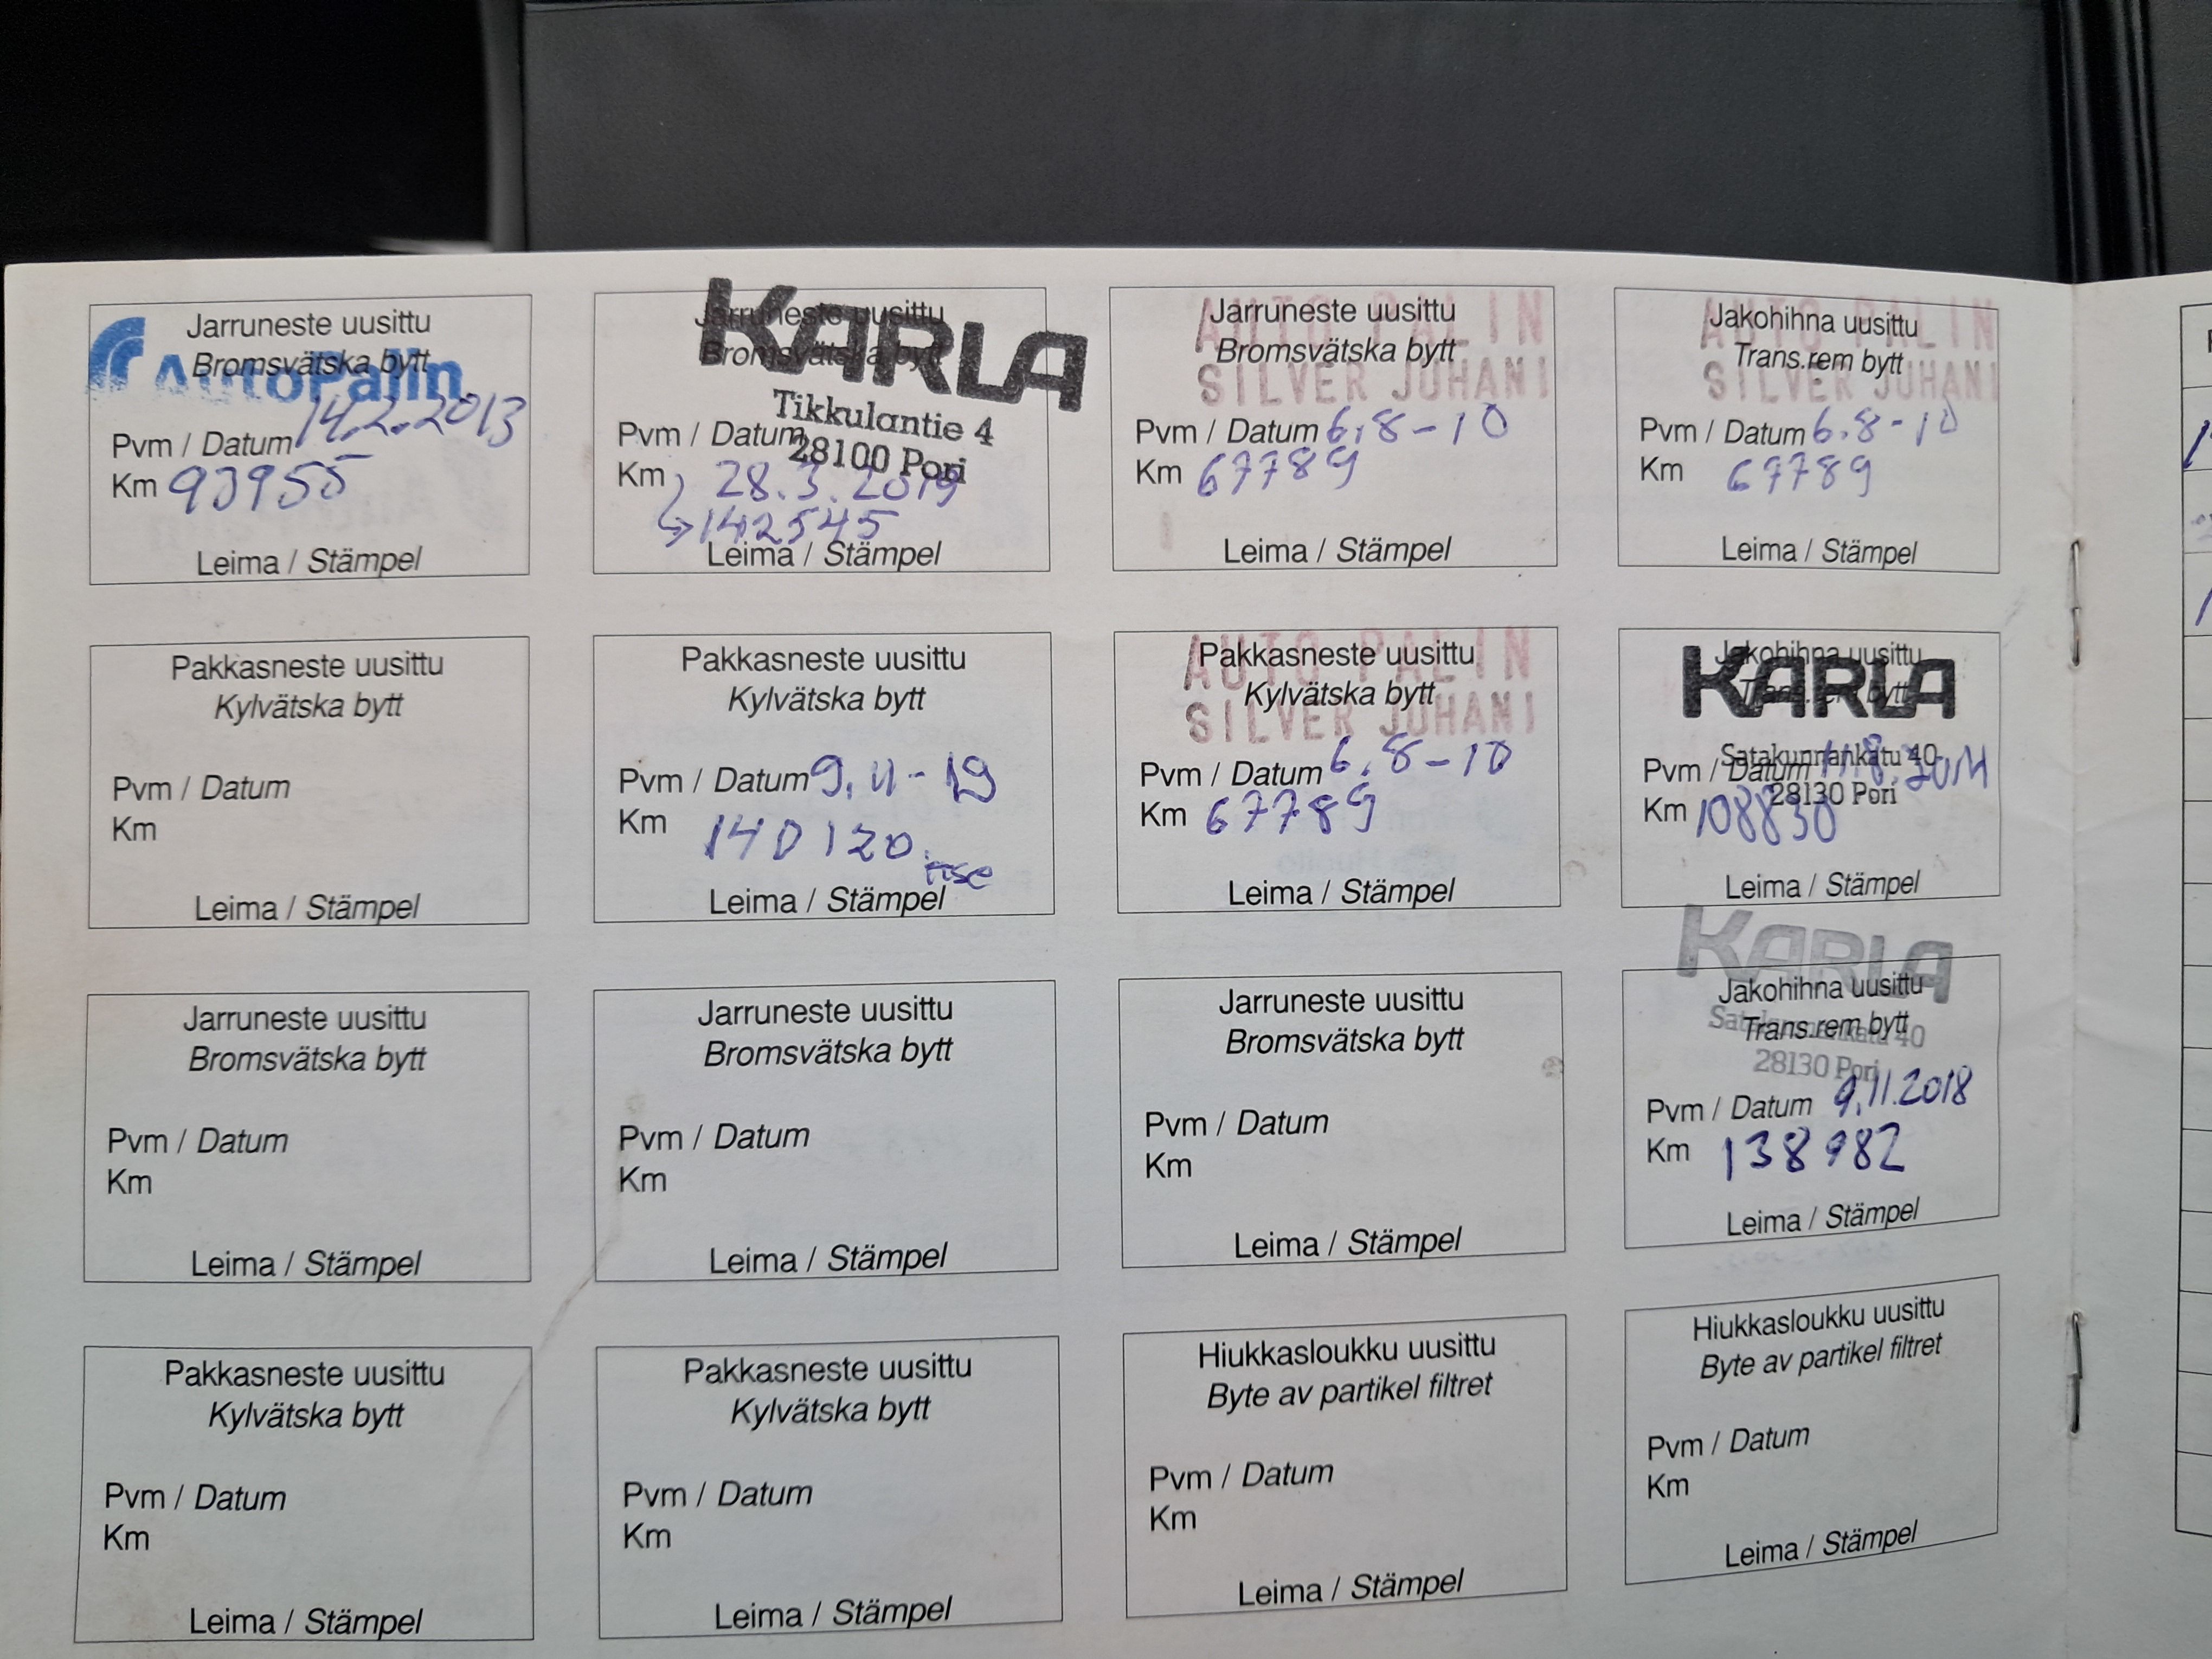 Jarruneste uusittu
Bromsvätska bytt
AutoPalin
Pvm / Datum 14.2.2013
Km 93955
Leima / Stämpel
KARLA
Jarruneste uusittu
Bromsvätska bytt
Tikkulantie 4
Pvm / Datum
28100 Pori
Km 28.3.2019
142545
Leima / Stämpel
AUTO PALIN
Jarruneste uusittu
Bromsvätska bytt
SILVER JUHANI
Pvm / Datum 6.8-10
Km 67789
Leima / Stämpel
AUTO PALIN
Jakohihna uusittu
Trans.rem bytt
SILVER JUHANI
Pvm / Datum 6.8-10
Km 67789
Leima / Stämpel
Pakkasneste uusittu
Kylvätska bytt
Pvm / Datum
Km
Leima / Stämpel
Pakkasneste uusittu
Kylvätska bytt
Pvm / Datum 9.11-19
Km 140120
Leima / Stämpel
AUTO PALIN
Pakkasneste uusittu
Kylvätska bytt
SILVER JUHANI
Pvm / Datum 6.8-10
Km 67789
Leima / Stämpel
Jakohihna uusittu
KARLA
Trans.rem bytt
Satakunnankatu 40
Pvm / Datum 11.8.2014
28130 Pori
Km 108830
Leima / Stämpel
Jarruneste uusittu
Bromsvätska bytt
Pvm / Datum
Km
Leima / Stämpel
Jarruneste uusittu
Bromsvätska bytt
Pvm / Datum
Km
Leima / Stämpel
Jarruneste uusittu
Bromsvätska bytt
Pvm / Datum
Km
Leima / Stämpel
KARLA
Jakohihna uusittu
Satakunnankatu 40
Trans.rem bytt
28130 Pori
Pvm / Datum 9.11.2018
Km 138982
Leima / Stämpel
Pakkasneste uusittu
Kylvätska bytt
Pvm / Datum
Km
Leima / Stämpel
Pakkasneste uusittu
Kylvätska bytt
Pvm / Datum
Km
Leima / Stämpel
Hiukkasloukku uusittu
Byte av partikel filtret
Pvm / Datum
Km
Leima / Stämpel
Hiukkasloukku uusittu
Byte av partikel filtret
Pvm / Datum
Km
Leima / Stämpel